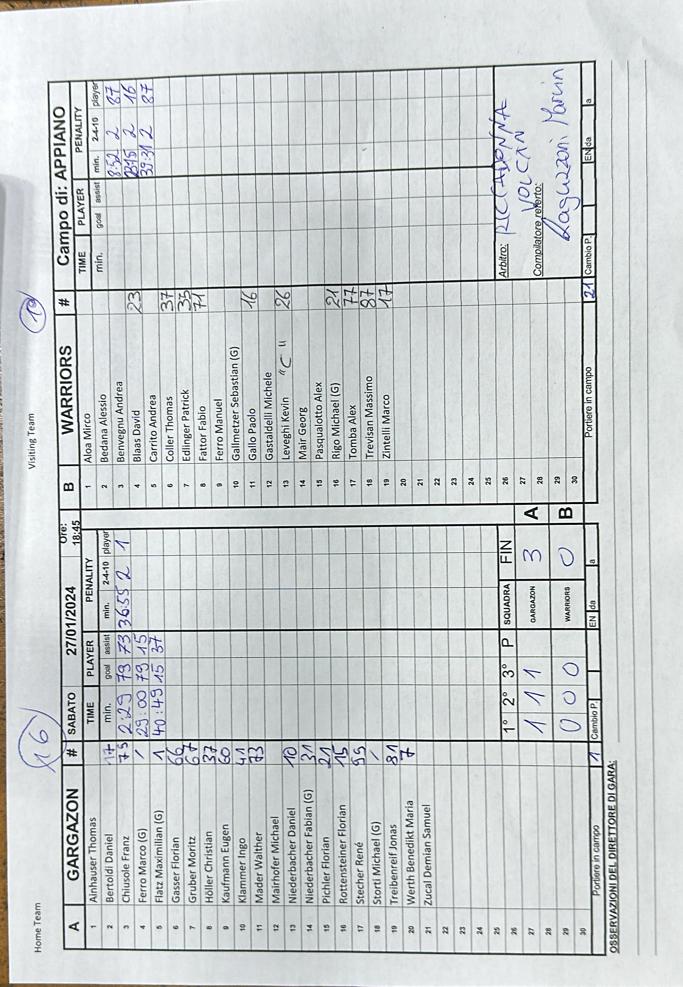 Home Team
Visiting Team
16
A GARGAZON # SABATO 27/01/2024 Ore: 18:45
TIME PLAYER PENALITY
min. goal assist min. 2-4-10 player
2:29 79 73 36:55 2 1
29:00 79 15
40:49 15 37
1 Ainhauser Thomas
2 Bertoldi Daniel 17
3 Chiusole Franz 75
4 Ferro Marco (G) /
5 Flatz Maximilian (G) 1
6 Gasser Florian 66
7 Gruber Moritz 67
8 Höller Christian 37
9 Kaufmann Eugen 60
10 Klammer Ingo 41
11 Mader Walther 73
12 Mairhofer Michael
13 Niederbacher Daniel 10
14 Niederbacher Fabian (G) 31
15 Pichler Florian 21
16 Rottensteiner Florian 15
17 Stecher René 95
18 Stortl Michael (G) /
19 Treibenreif Jonas 81
20 Werth Benedikt Maria 7
21 Zucal Demian Samuel
22
23
24
25
26
27
28
29
30
1° 2° 3° P SQUADRA FIN
1 1 1 GARGAZON 3 A
0 0 0 WARRIORS 0 B
Portiere in campo 1 Cambio P. EN da a
B WARRIORS # Campo di: APPIANO
TIME PLAYER PENALITY
min. goal assist min. 2-4-10 player
8:52 2 87
2 16
39:31 2 87
1 Aloa Mirco
2 Bedana Alessio
3 Benvegnu Andrea
4 Blaas David 23
5 Carrito Andrea
6 Coller Thomas 37
7 Edlinger Patrick 33
8 Fattor Fabio 71
9 Ferro Manuel
10 Gallmetzer Sebastian (G)
11 Gallo Paolo 16
12 Gastaldelli Michele
13 Leveghi Kevin "C" 26
14 Mair Georg
15 Pasqualotto Alex
16 Rigo Michael (G) 21
17 Tomba Alex 77
18 Trevisan Massimo 87
19 Zintelli Marco 17
20
21
22
23
24
25
26
27
28
29
30
Arbitro: RICCADONNA
VOLCAN
Compilatore referto:
Raguzzoni Marvin
Portiere in campo 21 Cambio P. EN da a
OSSERVAZIONI DEL DIRETTORE DI GARA: